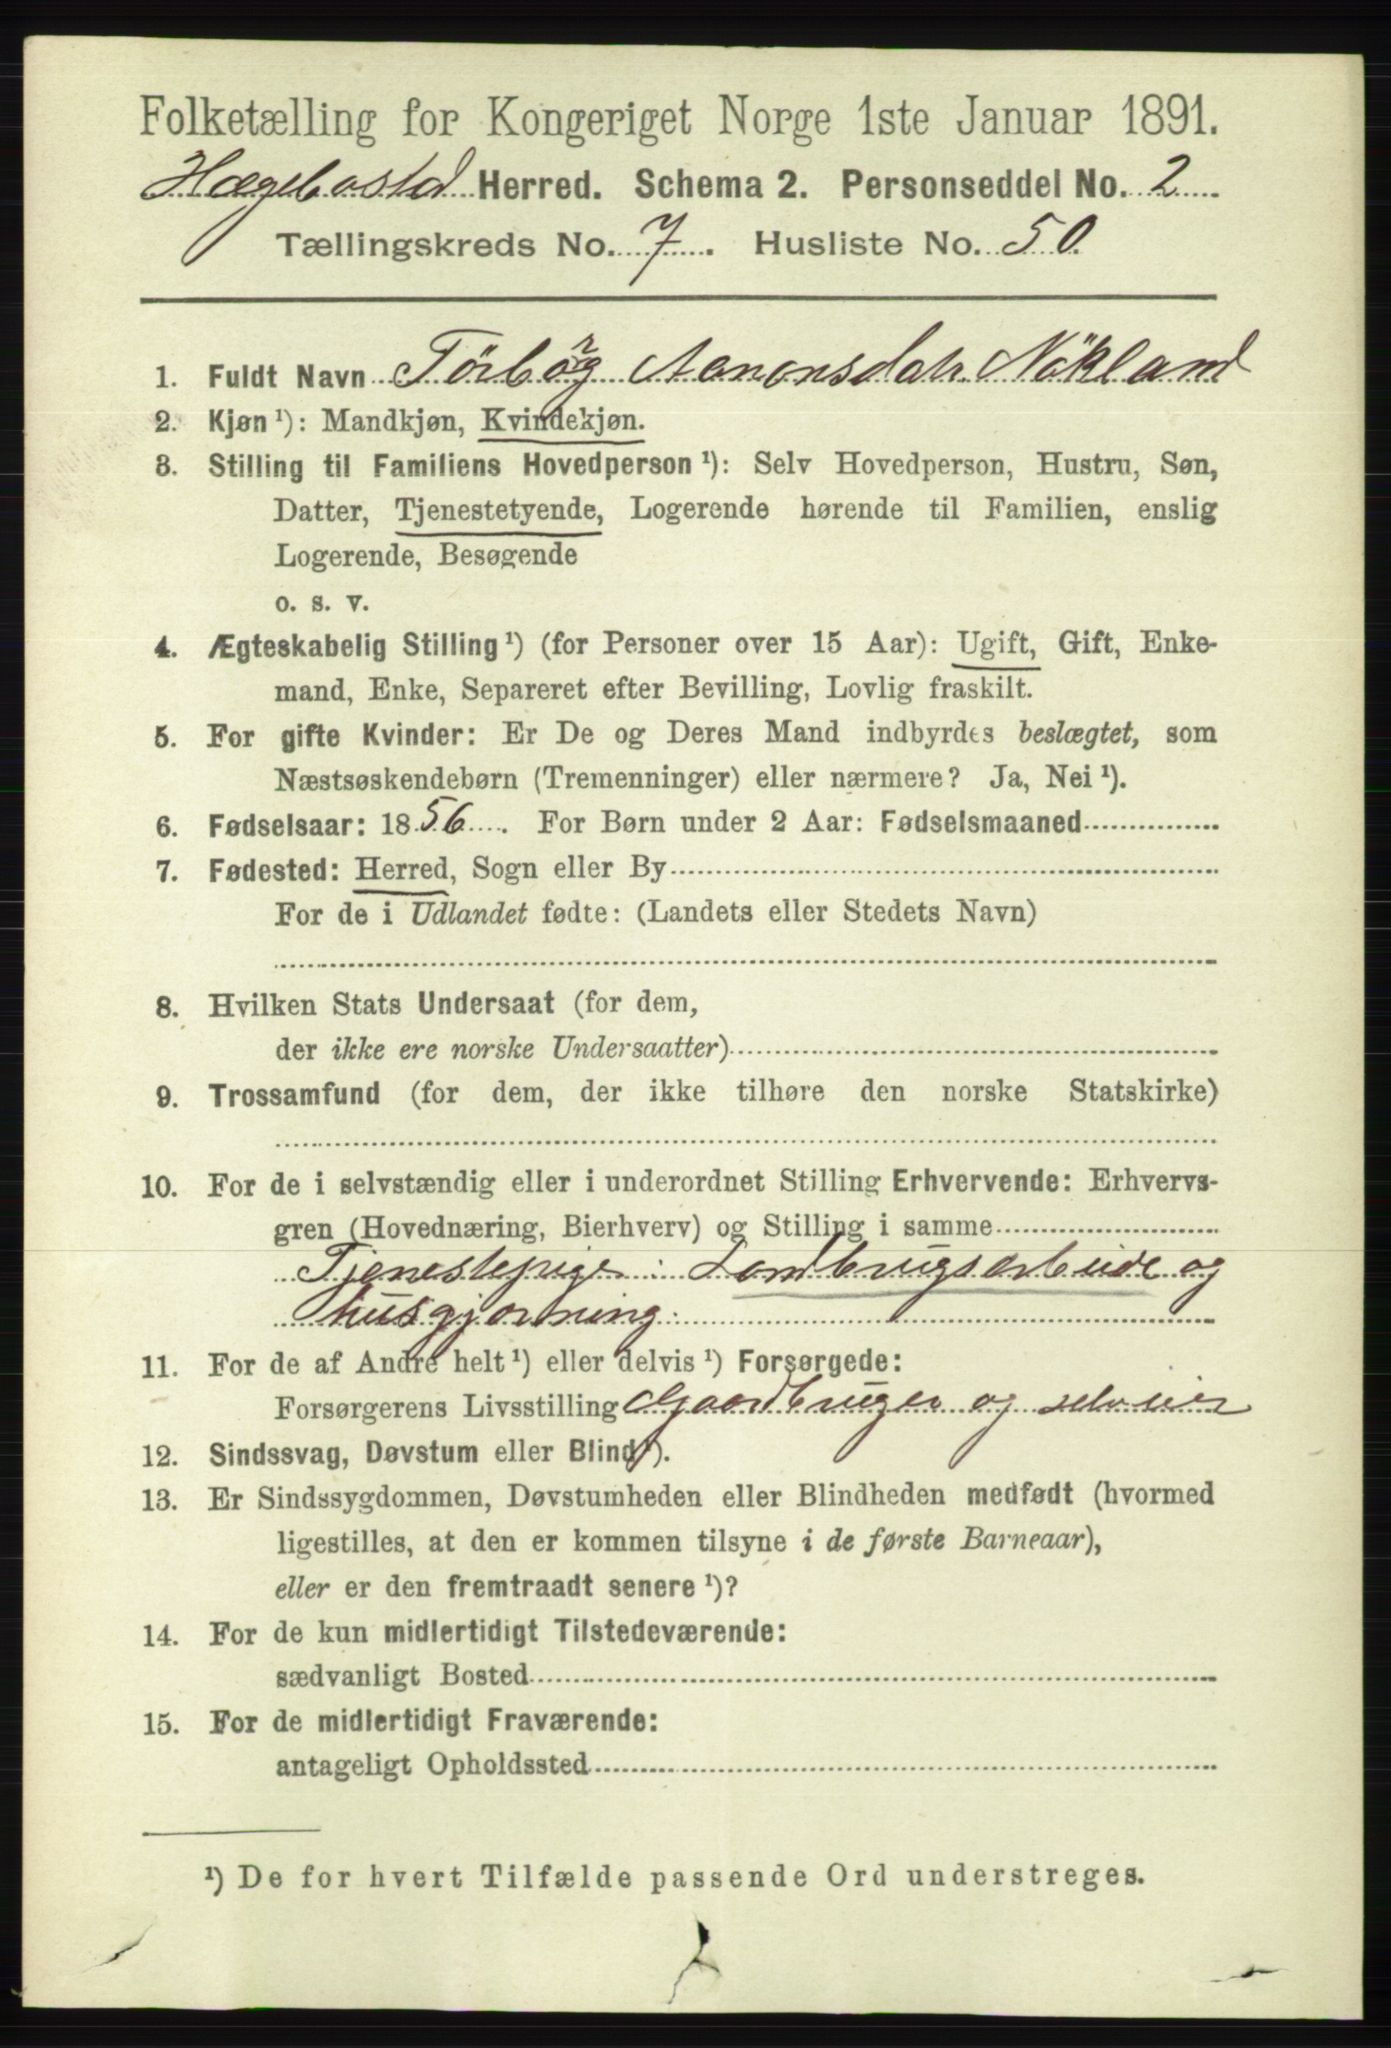 Folketælling for Kongeriget Norge 1ste Januar 1891.
Hægebostad Herred. Schema 2. Personseddel No. 2
Tællingskreds No. 7. Husliste No. 50
1. Fuldt Navn Törbörg Aanonsdatr. Nökland
2. Kjøn ¹): Mandkjøn, Kvindekjøn.
3. Stilling til Familiens Hovedperson ¹): Selv Hovedperson, Hustru, Søn,
Datter, Tjenestetyende, Logerende hørende til Familien, enslig
Logerende, Besøgende
o. s. v.
4. Ægteskabelig Stilling ¹) (for Personer over 15 Aar): Ugift, Gift, Enke-
mand, Enke, Separeret efter Bevilling, Lovlig fraskilt.
5. For gifte Kvinder: Er De og Deres Mand indbyrdes beslægtet, som
Næstsøskendebørn (Tremenninger) eller nærmere? Ja, Nei ¹).
6. Fødselsaar: 1856. For Børn under 2 Aar: Fødselsmaaned
7. Fødested: Herred, Sogn eller By
For de i Udlandet fødte: (Landets eller Stedets Navn)
8. Hvilken Stats Undersaat (for dem,
der ikke ere norske Undersaatter)
9. Trossamfund (for dem, der ikke tilhøre den norske Statskirke)
10. For de i selvstændig eller i underordnet Stilling Erhvervende: Erhvervs-
gren (Hovednæring, Bierhverv) og Stilling i samme
Tjenestepige: Landbrugsarbeide og
husgjorning.
11. For de af Andre helt ¹) eller delvis ¹) Forsørgede:
Forsørgerens Livsstilling Gaardbruger og selveier
12. Sindssvag, Døvstum eller Blind ¹).
13. Er Sindssygdommen, Døvstumheden eller Blindheden medfødt (hvormed
ligestilles, at den er kommen tilsyne i de første Barneaar),
eller er den fremtraadt senere ¹)?
14. For de kun midlertidigt Tilstedeværende:
sædvanligt Bosted
15. For de midlertidigt Fraværende:
antageligt Opholdssted
¹) De for hvert Tilfælde passende Ord understreges.